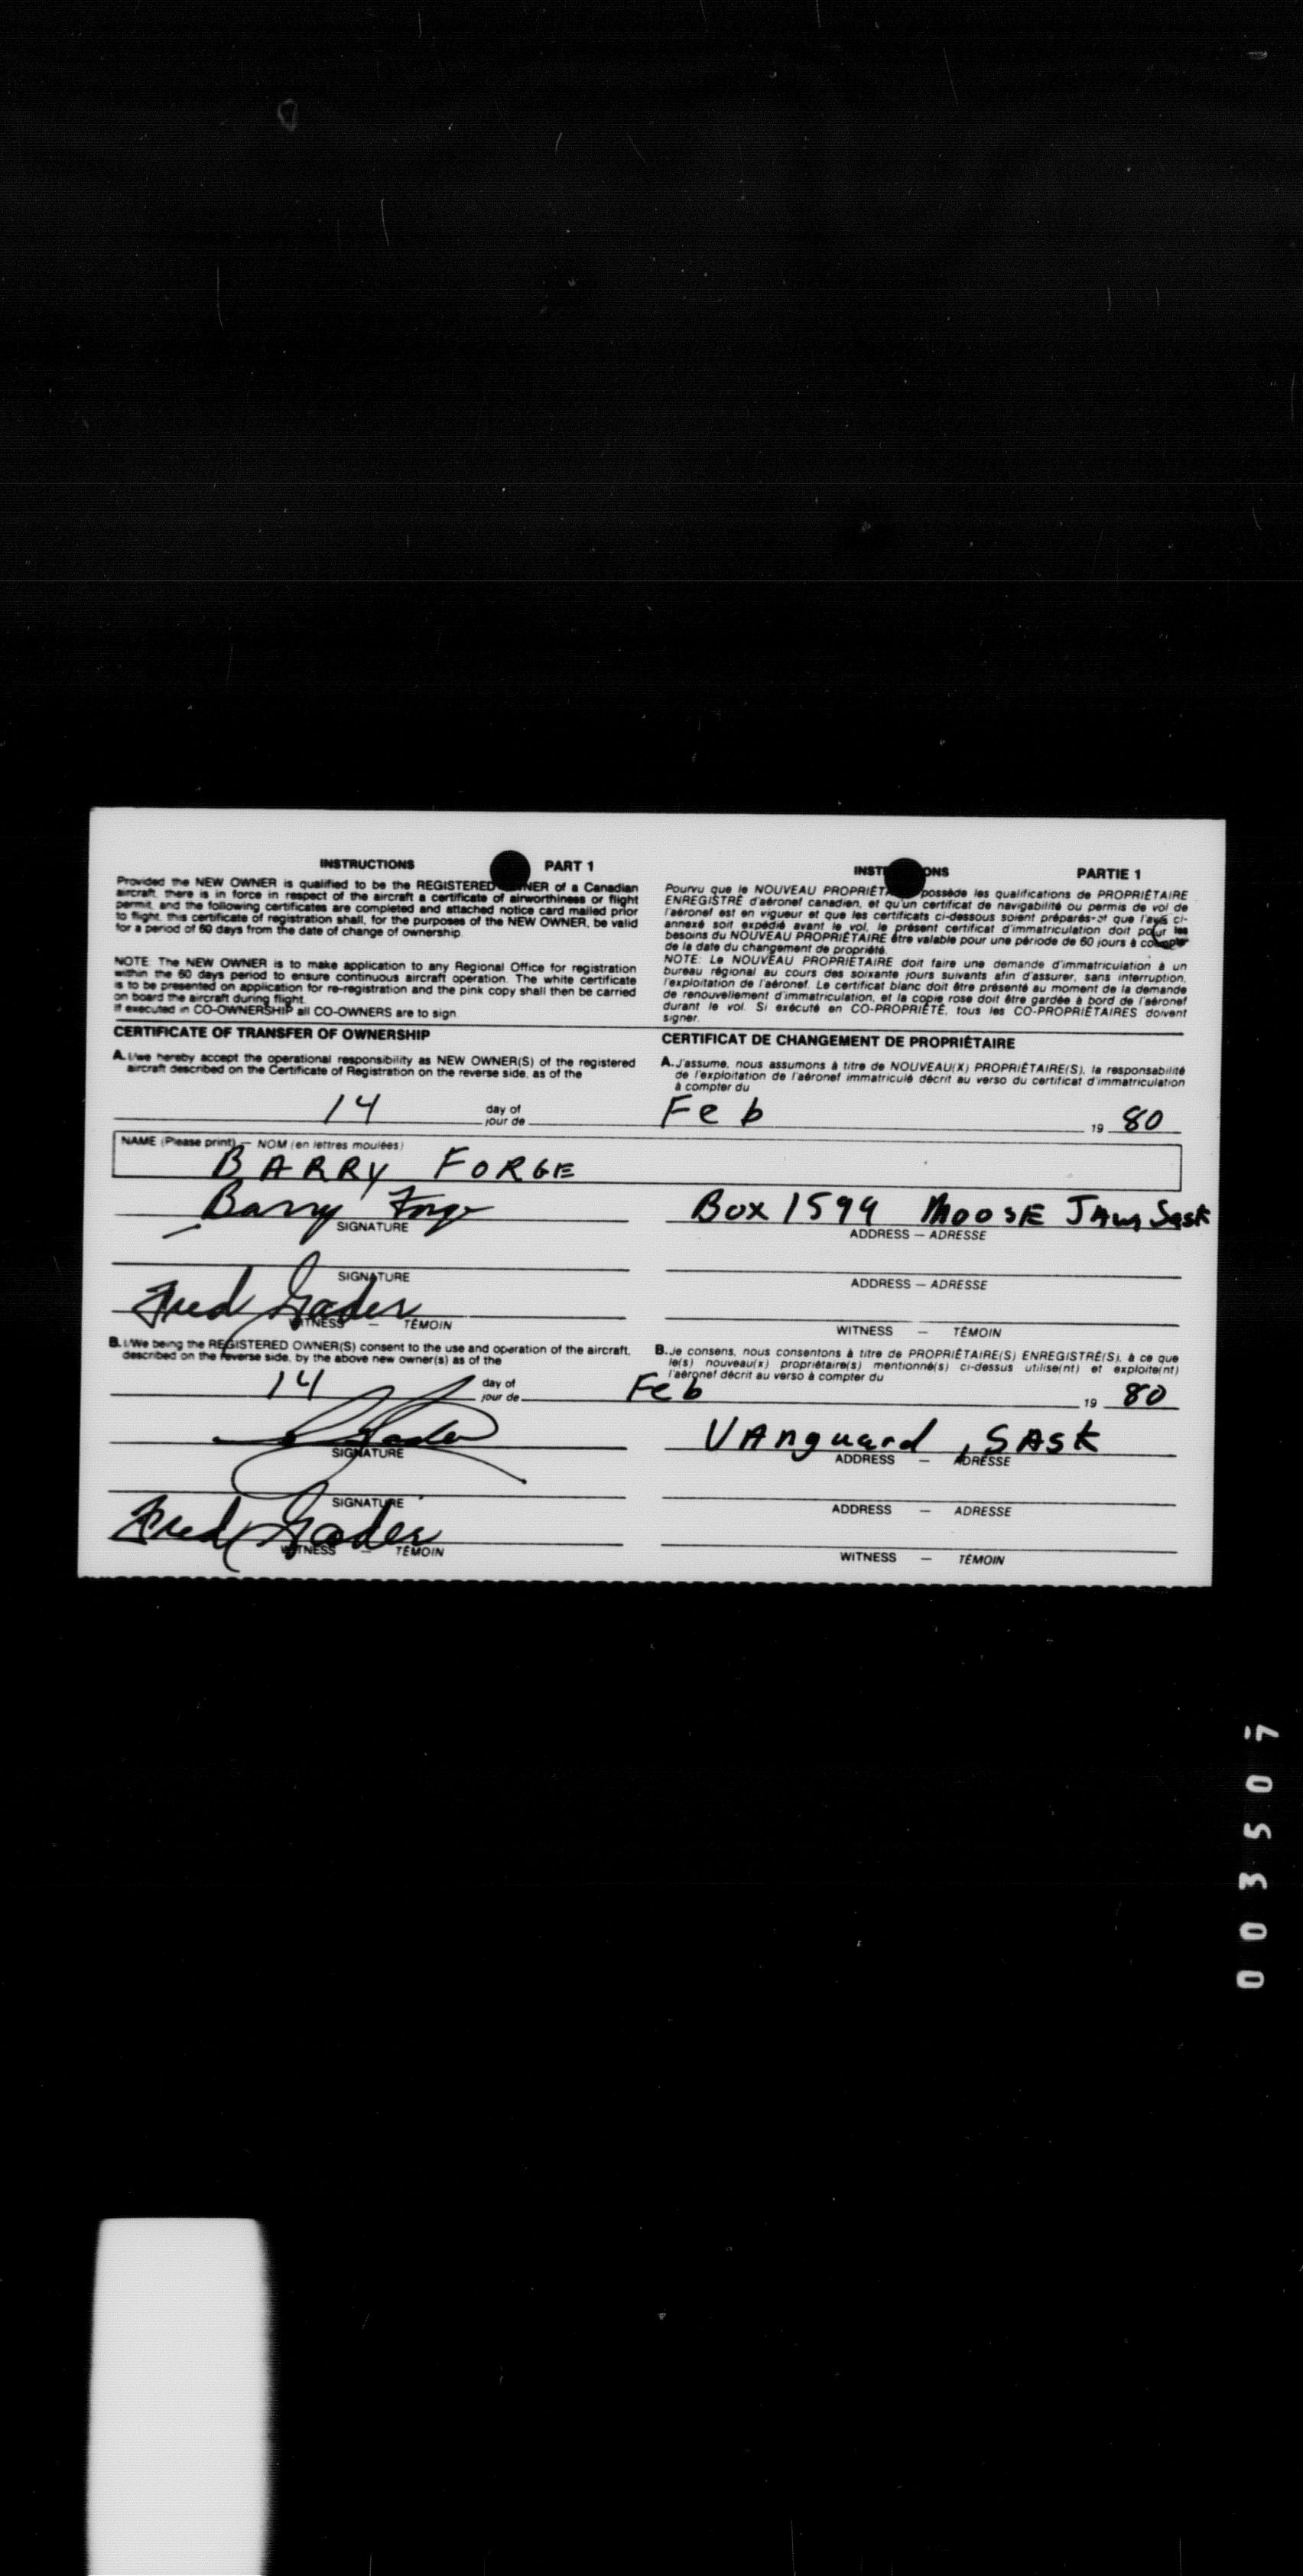 INSTRUCTIONS PART 1
Provided the NEW OWNER is qualified to be the REGISTERED OWNER of a Canadian
aircraft, there is in force in respect of the aircraft a certificate of airworthiness or flight
permit, and the following certificates are completed and attached notice card mailed prior
to flight, this certificate of registration shall, for the purposes of the NEW OWNER, be valid
for a period of 60 days from the date of change of ownership.
NOTE: The NEW OWNER is to make application to any Regional Office for registration
within the 60 days period to ensure continuous aircraft operation. The white certificate
is to be presented on application for re-registration and the pink copy shall then be carried
on board the aircraft during flight.
If executed in CO-OWNERSHIP all CO-OWNERS are to sign.
INSTRUCTIONS PARTIE 1
Pourvu que le NOUVEAU PROPRIÉTAIRE possède les qualifications de PROPRIÉTAIRE
ENREGISTRÉ d'aéronef canadien, et qu'un certificat de navigabilité ou permis de vol de
l'aéronef est en vigueur et que les certificats ci-dessous soient préparés et que l'avis ci-
annexé soit expédié avant le vol, le présent certificat d'immatriculation doit pour les
besoins du NOUVEAU PROPRIÉTAIRE être valable pour une période de 60 jours à compter
de la date du changement de propriété.
NOTE: Le NOUVEAU PROPRIÉTAIRE doit faire une demande d'immatriculation à un
bureau régional au cours des soixante jours suivants afin d'assurer, sans interruption,
l'exploitation de l'aéronef. Le certificat blanc doit être présenté au moment de la demande
de renouvellement d'immatriculation, et la copie rose doit être gardée à bord de l'aéronef
durant le vol. Si exécuté en CO-PROPRIÉTÉ, tous les CO-PROPRIÉTAIRES doivent
signer.
CERTIFICATE OF TRANSFER OF OWNERSHIP
CERTIFICAT DE CHANGEMENT DE PROPRIÉTAIRE
A. I/we hereby accept the operational responsibility as NEW OWNER(S) of the registered
aircraft described on the Certificate of Registration on the reverse side, as of the
A. J'assume, nous assumons à titre de NOUVEAU(X) PROPRIÉTAIRE(S), la responsabilité
de l'exploitation de l'aéronef immatriculé décrit au verso du certificat d'immatriculation
à compter du
14 day of jour de Feb 19 80
NAME (Please print) — NOM (en lettres moulées)
BARRY FORGE
Barry Forge Box 1599 MOOSE JAW, Sask
SIGNATURE ADDRESS — ADRESSE
SIGNATURE ADDRESS — ADRESSE
Fred Gader
WITNESS — TÉMOIN WITNESS — TÉMOIN
B. I/We being the REGISTERED OWNER(S) consent to the use and operation of the aircraft,
described on the reverse side, by the above new owner(s) as of the
B. Je consens, nous consentons à titre de PROPRIÉTAIRE(S) ENREGISTRÉ(S), à ce que
le(s) nouveau(x) propriétaire(s) mentionné(s) ci-dessus utilise(nt) et exploite(nt)
l'aéronef décrit au verso à compter du
14 day of jour de Feb 19 80
VAnguard, SASK
SIGNATURE ADDRESS — ADRESSE
SIGNATURE ADDRESS — ADRESSE
Fred Gader
WITNESS — TÉMOIN WITNESS — TÉMOIN
003507